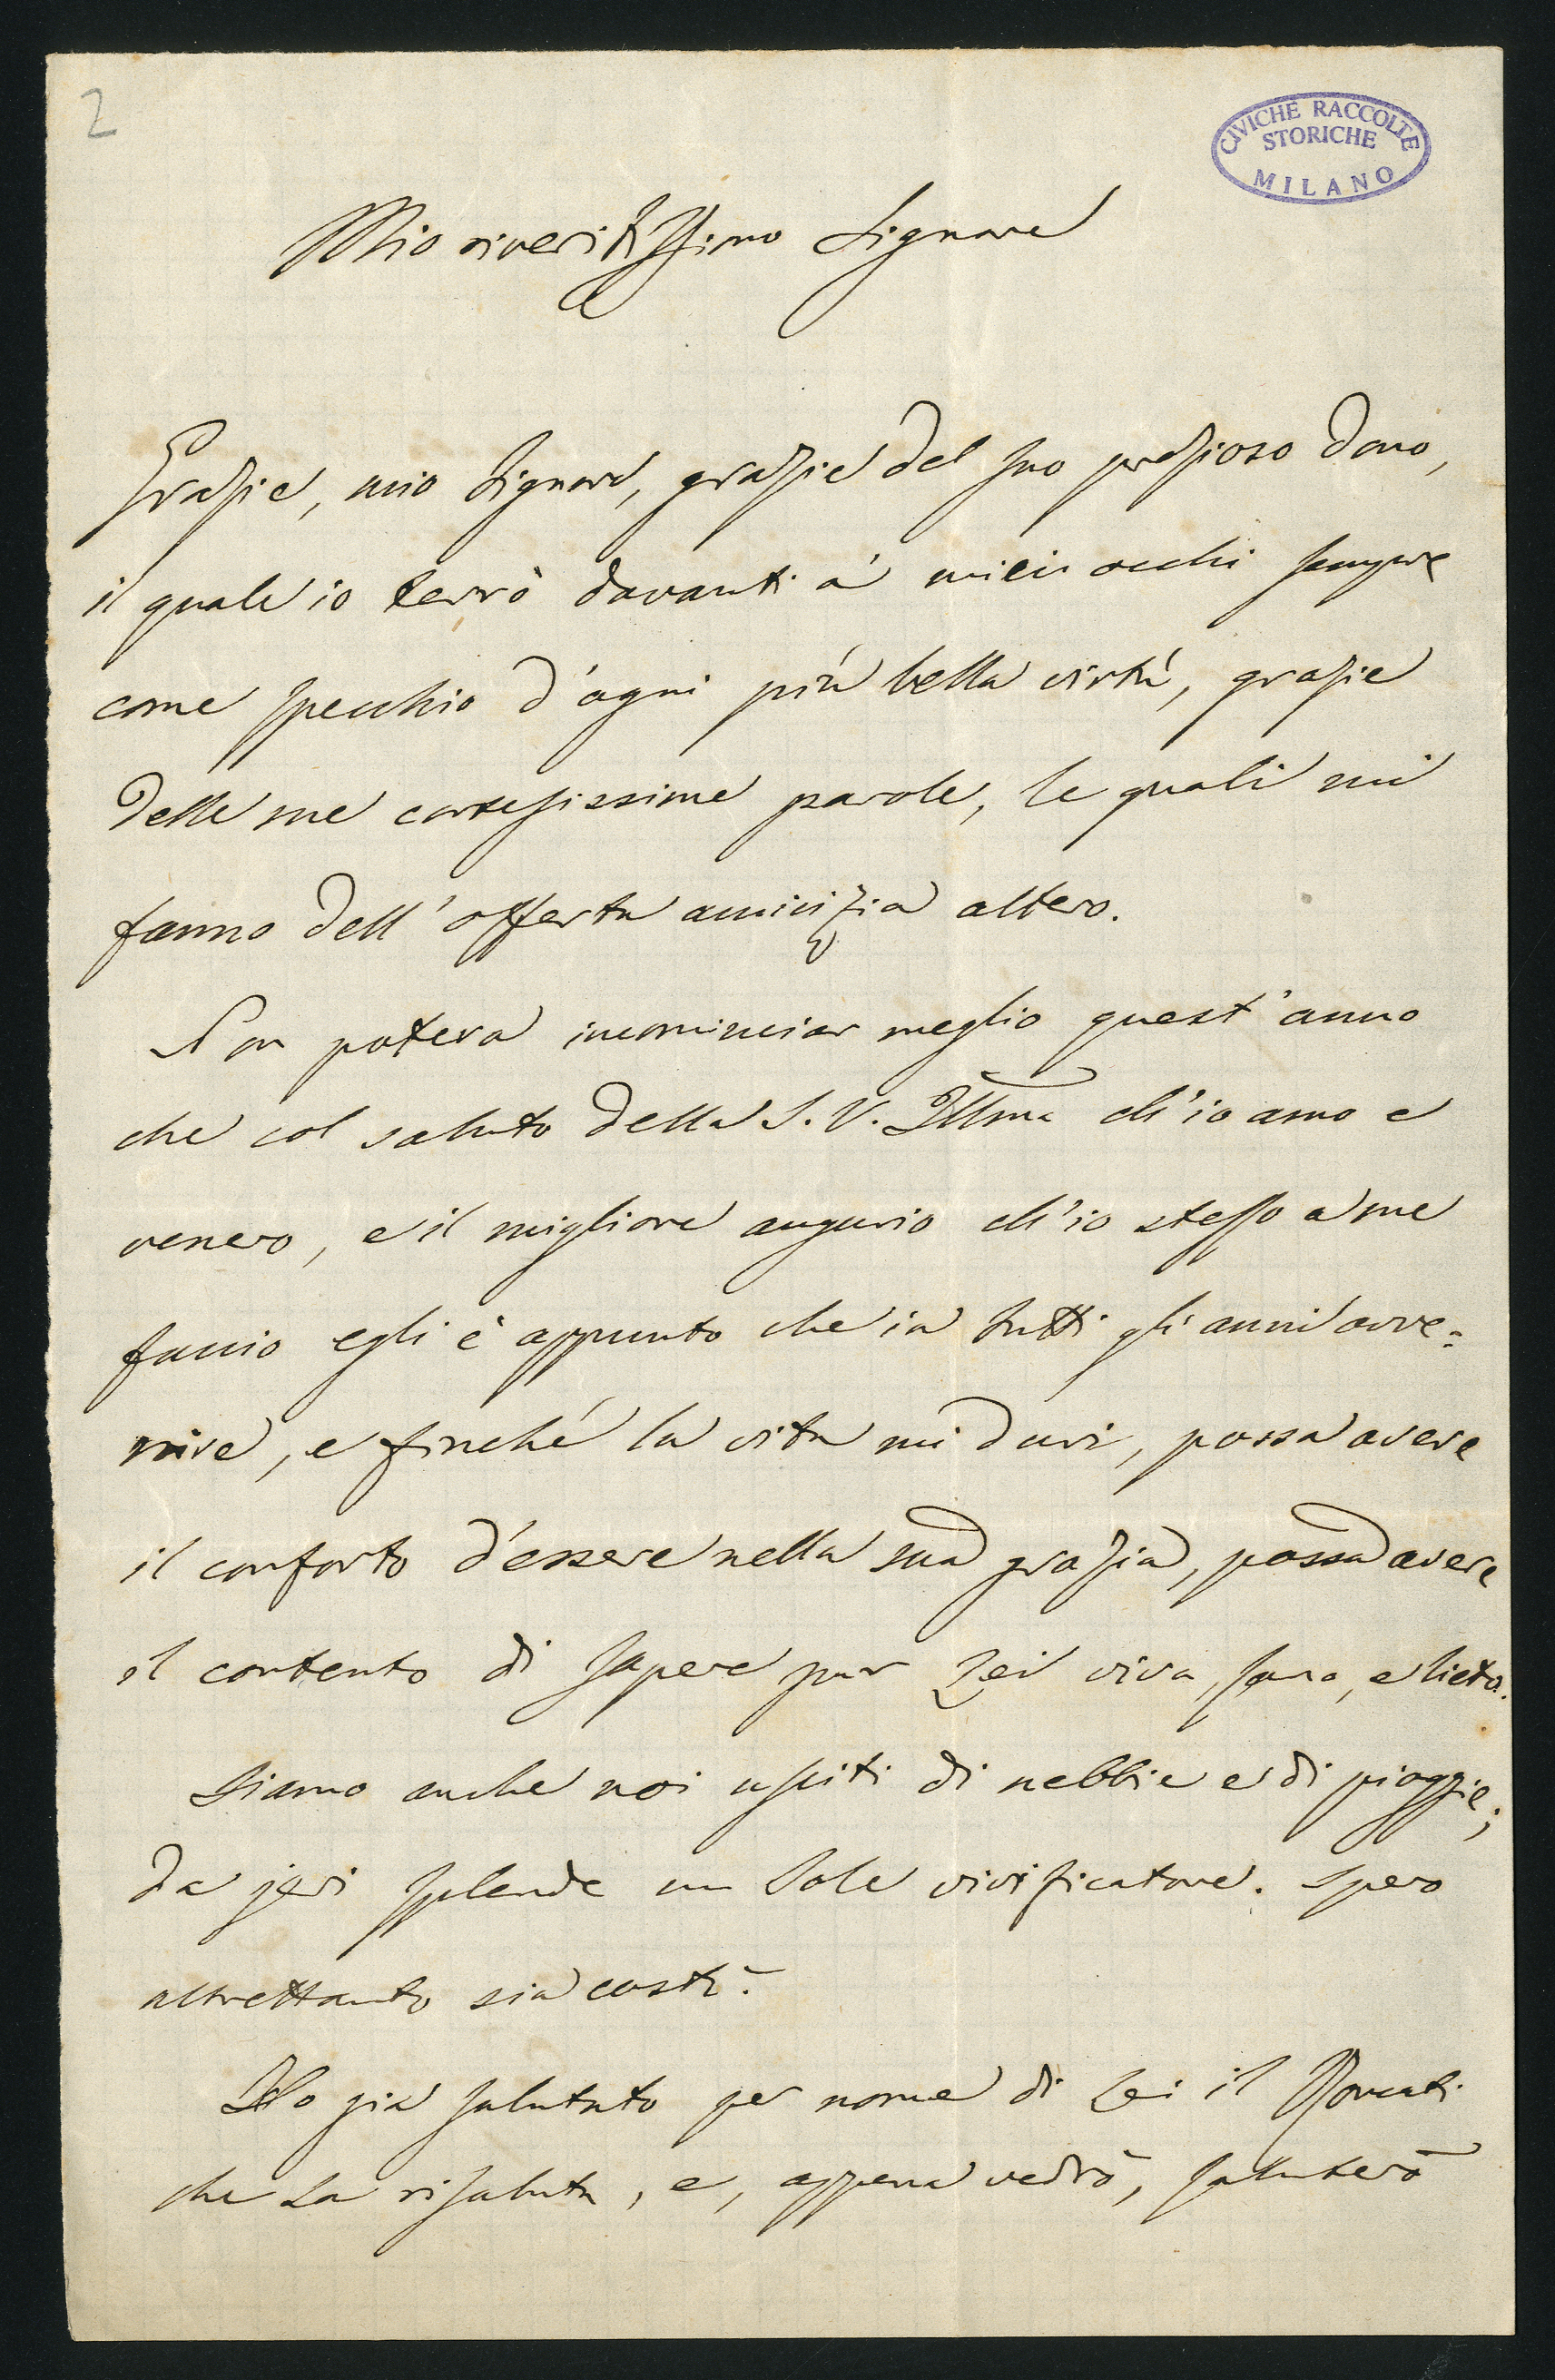 2
CIVICHE RACCOLTE
STORICHE
MILANO
Mio riveritissimo Signore
Grazie, mio Signore, grazie del suo prezioso dono,
il quale io terrò davanti a' miei occhi sempre
come specchio d'ogni più bella virtù, grazie
delle sue cortesissime parole, le quali mi
fanno dell'offerta amicizia altero.
Non poteva incominciar meglio quest'anno
che col saluto della S. V. Illma ch'io amo e
venero, e il migliore augurio ch'io stesso a me
faccio egli è appunto che in tutti gli anni avve=
nire, e finché la vita mi duri, possa avere
il conforto d'essere nella sua grazia, possa avere
il contento di sapere pur Lei viva, sana, e lieta.
Siamo anche noi usciti di nebbie e di pioggie;
da jeri splende un Sole vivificatore. Spero
altrettanto sia costì.
Ho già salutato per nome di Lei il
che La risaluta, e, appena vedrò, saluterò